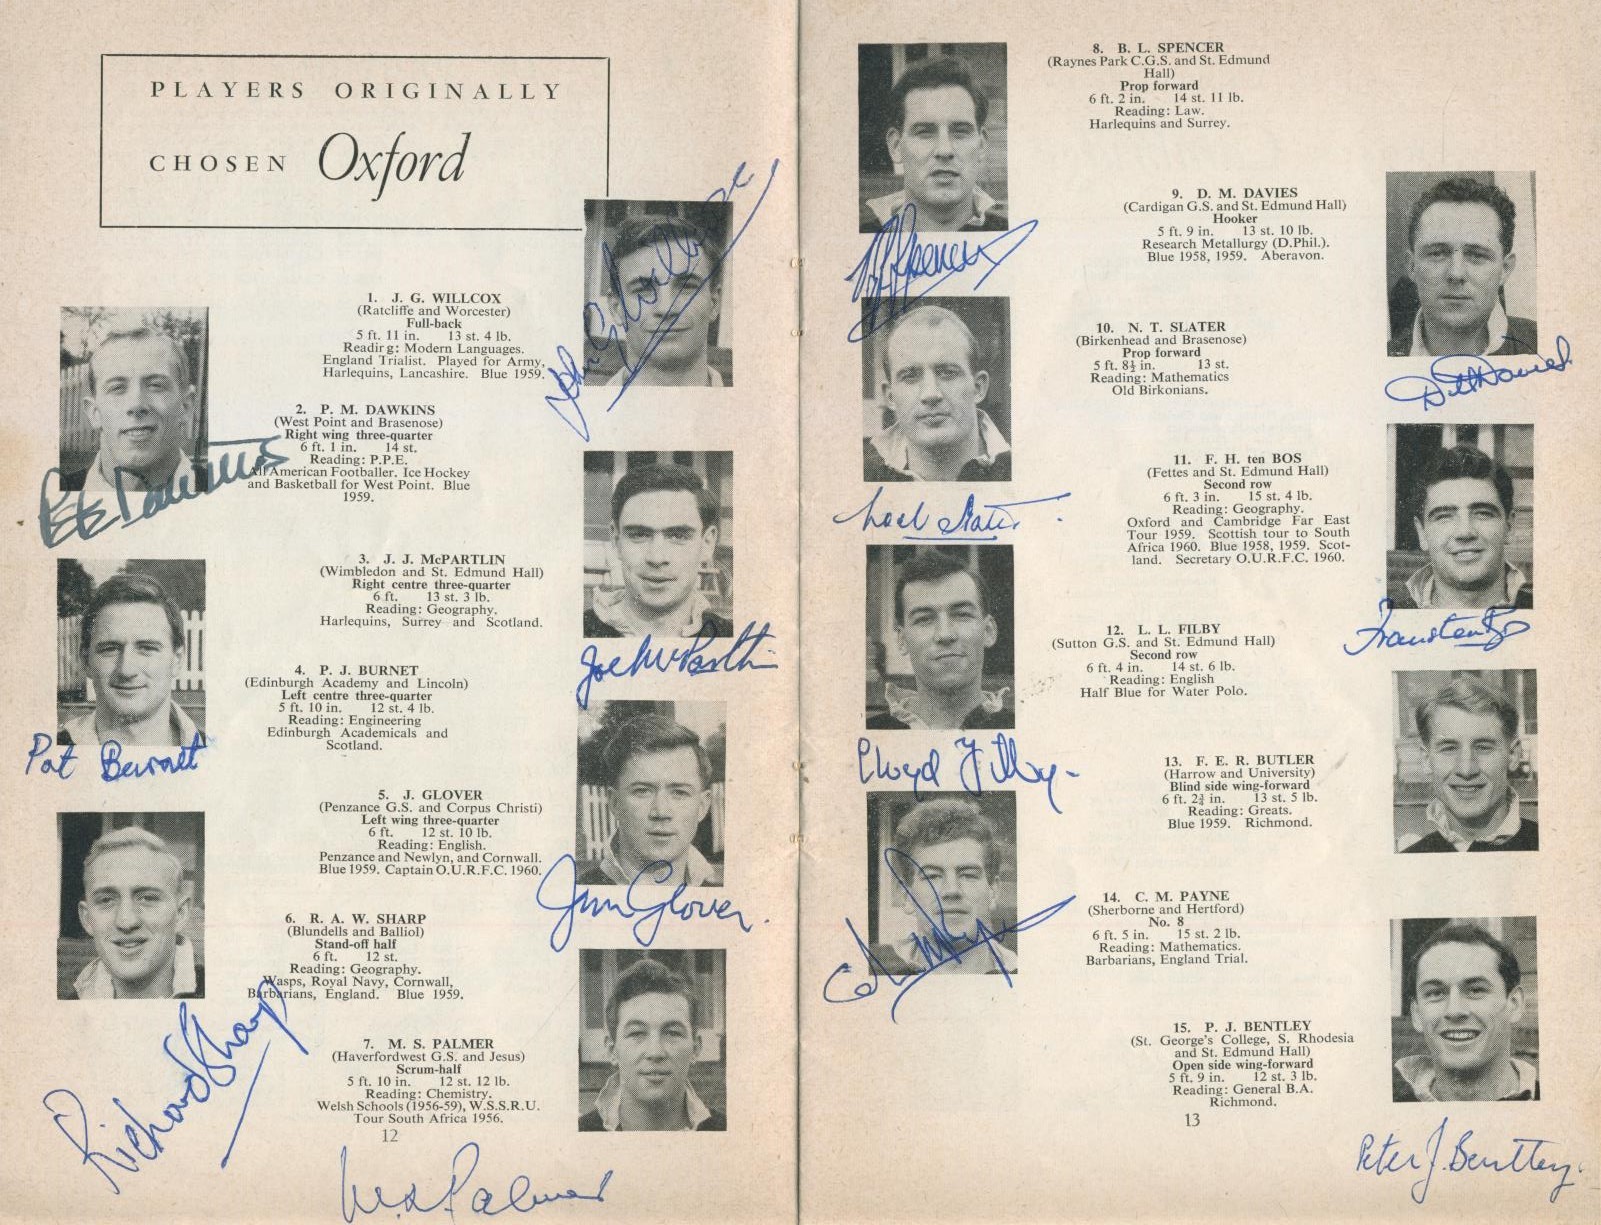 PLAYERS ORIGINALLY
CHOSEN Oxford
1. J. G. WILLCOX
(Ratcliffe and Worcester)
Full-back
5 ft. 11 in. 13 st. 4 lb.
Reading: Modern Languages.
England Trialist. Played for Army,
Harlequins, Lancashire. Blue 1959.
John G Willcox
2. P. M. DAWKINS
(West Point and Brasenose)
Right wing three-quarter
6 ft. 1 in. 14 st.
Reading: P.P.E.
All American Footballer. Ice Hockey
and Basketball for West Point. Blue
1959.
Dawkins
3. J. J. McPARTLIN
(Wimbledon and St. Edmund Hall)
Right centre three-quarter
6 ft. 13 st. 3 lb.
Reading: Geography.
Harlequins, Surrey and Scotland.
Joe McPartlin
4. P. J. BURNET
(Edinburgh Academy and Lincoln)
Left centre three-quarter
5 ft. 10 in. 12 st. 4 lb.
Reading: Engineering
Edinburgh Academicals and
Scotland.
Pat Burnet
5. J. GLOVER
(Penzance G.S. and Corpus Christi)
Left wing three-quarter
6 ft. 12 st. 10 lb.
Reading: English.
Penzance and Newlyn, and Cornwall.
Blue 1959. Captain O.U.R.F.C. 1960.
Jim Glover.
6. R. A. W. SHARP
(Blundells and Balliol)
Stand-off half
6 ft. 12 st.
Reading: Geography.
Wasps, Royal Navy, Cornwall,
Barbarians, England. Blue 1959.
Richard Sharp
7. M. S. PALMER
(Haverfordwest G.S. and Jesus)
Scrum-half
5 ft. 10 in. 12 st. 12 lb.
Reading: Chemistry.
Welsh Schools (1956-59), W.S.S.R.U.
Tour South Africa 1956.
12
M.S. Palmer
8. B. L. SPENCER
(Raynes Park C.G.S. and St. Edmund
Hall)
Prop forward
6 ft. 2 in. 14 st. 11 lb.
Reading: Law.
Harlequins and Surrey.
Spencer
9. D. M. DAVIES
(Cardigan G.S. and St. Edmund Hall)
Hooker
5 ft. 9 in. 13 st. 10 lb.
Research Metallurgy (D.Phil.).
Blue 1958, 1959. Aberavon.
D M Davies
10. N. T. SLATER
(Birkenhead and Brasenose)
Prop forward
5 ft. 8½ in. 13 st.
Reading: Mathematics
Old Birkonians.
Noel Slater.
11. F. H. ten BOS
(Fettes and St. Edmund Hall)
Second row
6 ft. 3 in. 15 st. 4 lb.
Reading: Geography.
Oxford and Cambridge Far East
Tour 1959. Scottish tour to South
Africa 1960. Blue 1958, 1959. Scot-
land. Secretary O.U.R.F.C. 1960.
Frans ten Bos
12. L. L. FILBY
(Sutton G.S. and St. Edmund Hall)
Second row
6 ft. 4 in. 14 st. 6 lb.
Reading: English
Half Blue for Water Polo.
Lloyd Filby.
13. F. E. R. BUTLER
(Harrow and University)
Blind side wing-forward
6 ft. 2¾ in. 13 st. 5 lb.
Reading: Greats.
Blue 1959. Richmond.
14. C. M. PAYNE
(Sherborne and Hertford)
No. 8
6 ft. 5 in. 15 st. 2 lb.
Reading: Mathematics.
Barbarians, England Trial.
15. P. J. BENTLEY
(St. George's College, S. Rhodesia
and St. Edmund Hall)
Open side wing-forward
5 ft. 9 in. 12 st. 3 lb.
Reading: General B.A.
Richmond.
13
Peter J. Bentley.